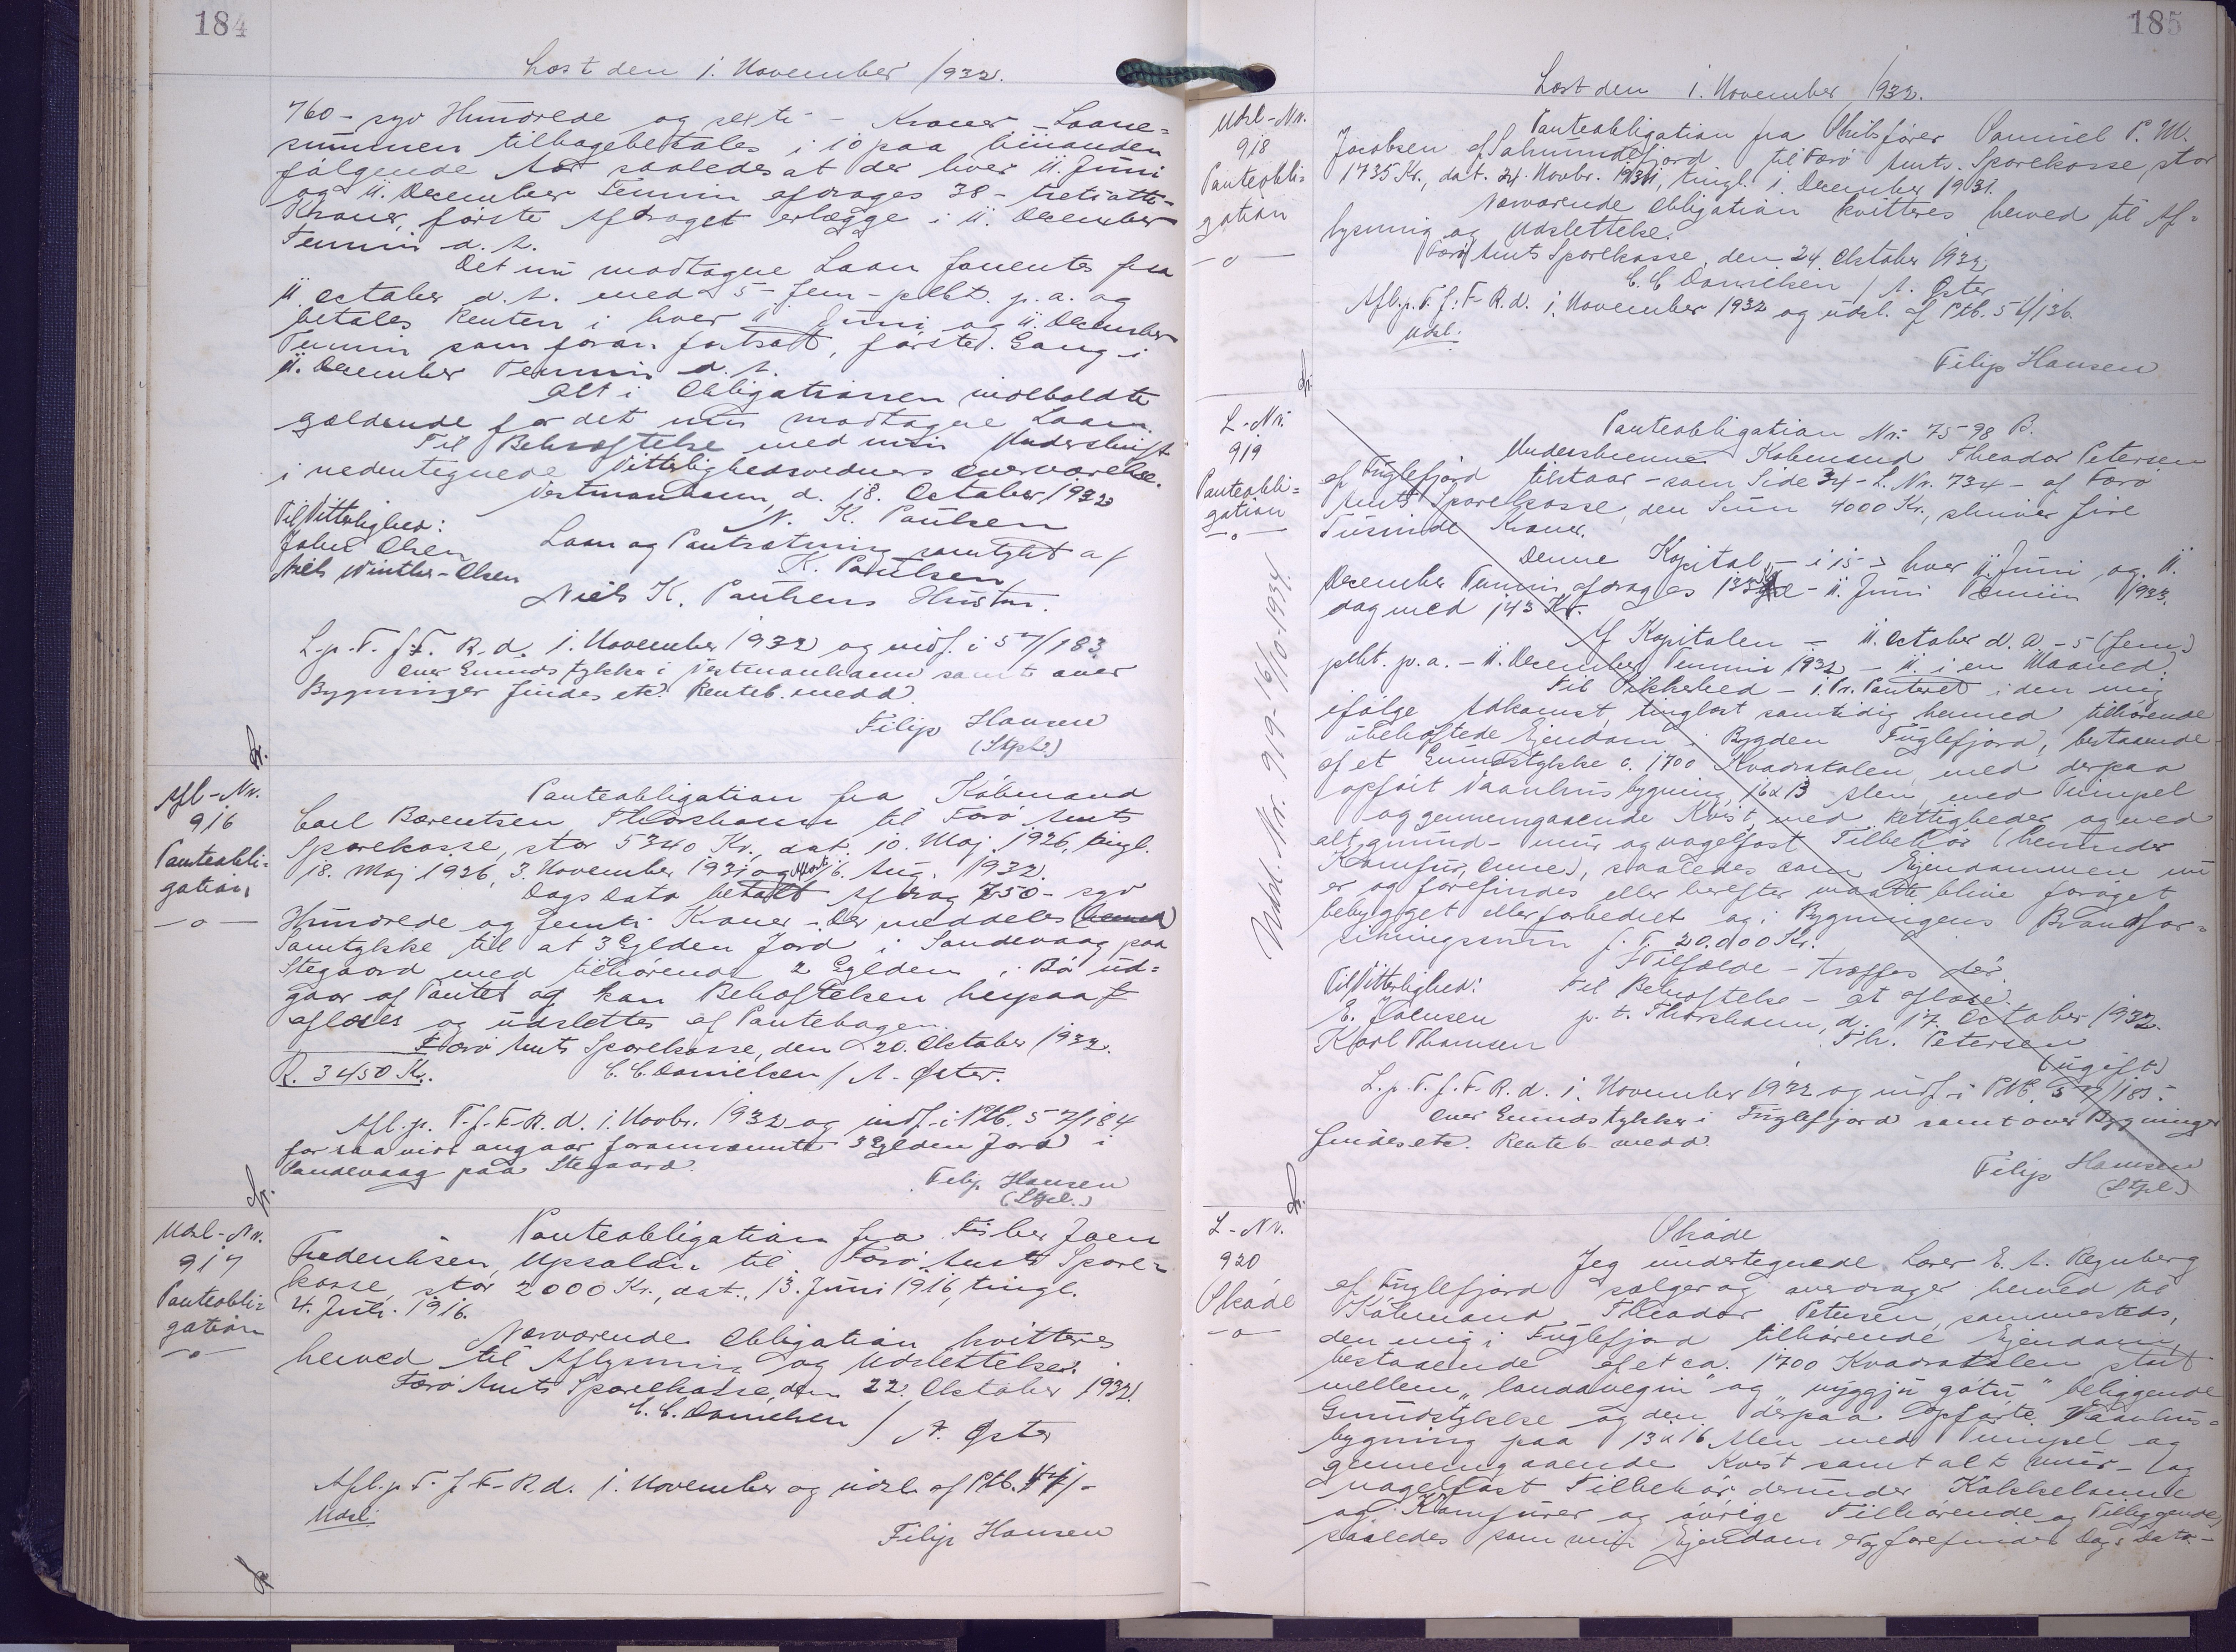 184
Læst den 1. November 1932.
760 - syv Hundrede og sexti - Kroner - Laane=
summen tilbagebetales i 10 paa hinanden
følgende Aar saaledes at der hver 11. Juni
og 11. December Termin afdrages 38 - tretiotte -
Kroner, første Afdraget erlægge i 11. December
Termin d. A.
Det nu modtagne Laan forrentes fra
11. October d. A. med 5 - fem - pCt. p. a. og
betales Renten i hver 11. Juni og 11. December
Termin som foran fortsatt, første Gang i
11. December Termin d. A.
Alt i Obligationen indeholdte
gældende for det nu modtagne Laan.
Til Bekræftelse med min Underskrift
i nedentegnede Vitterlighedsvidners Overværelse.
Vestmanhavn, d. 18. October 1932
N. K. Paulsen
Til Vitterlighed:
Johs Olsen
Niels Winther-Olsen
Laan og Pantsætning samtykt af
K. Paulsen
Niels K. Paulsens Hustru.
L. p. T. f. F. R. d. 1. November 1932 og indf. i 57/183.
Over Grundstykke i Vestmanhavn samt over
Bygninger findes etc. Renteb. medd.
Filip Hansen
(Stpl.)
Afl-Nr.
916
Panteobli=
gation
—o—
Panteobligation fra Købmand
Carl Bærentsen Thorshavn til Færø Amts
Sparekasse, stor 5340 Kr., dat. 10. Maj 1926, tingl.
18. Maj 1926, 3. November 1931 og 16. Aug. 1932.
Dags Dato betalt Afdrag 750 - syv
Hundrede og femti Kroner - Der meddeles (herved)
Samtykke til at 3 Gylden Jord i Sandevaag paa
Stegaard med tilhørende 2 Gylden i Bø ud=
gaar af Pantet og kan Behæftelsen herpaa
aflæses og udslettes af Pantebogen.
Færø Amts Sparekasse, den 20. Oktober 1932.
R. 3450 Kr.
C. C. Danielsen / A. Øster.
Afl. p. T. f. F. R. d. 1. Novbr. 1932 og indf. i Ptb. 57/184
for saa vidt angaar forannævnte 3 Gylden Jord i
Sandevaag paa Stegaard.
Filip Hansen
(Stpl.)
Udsl-Nr.
917
Panteobli=
gation
—o—
Panteobligation fra Fisker Joen
Frederiksen, Upsalen til Færø Amts Spare=
kasse, stor 2000 Kr., dat. 13. Juni 1916, tingl.
4. Juli 1916.
Nærværende Obligation kvitteres
herved til Aflysning og Udslettelse.
Færø Amts Sparekasse, den 22. Oktober 1932.
C. C. Danielsen / A. Øster
Afl. p. T. f. F. R. d. 1. November og udsl. af Ptb.
Udsl.
Filip Hansen
185
Læst den 1. November 1932.
Udsl-Nr.
918
Panteobli=
gation
—o—
Panteobligation fra Skibsfører Samuel P. M.
Jacobsen af Salmundefjord til Færø Amts Sparekasse, stor
1735 Kr., dat. 24. Novbr. 1931, tingl. 1. December 1931.
Nærværende Obligation kvitteres herved til Af=
lysning og Udslettelse.
Færø Amts Sparekasse, den 24. Oktober 1932
C. C. Danielsen / A. Øster
Afl. p. T. f. F. R. d. 1. November 1932 og udsl. af Ptb. 56/136.
Udsl.
Filip Hansen
L-Nr.
919
Panteobli=
gation
—o—
Udsl. Nr. 919 - 16/10-1934
Panteobligation Nr. 7598 B.
Underskrevne Købmand Theodor Petersen
af Fuglefjord tilstaar - som Side 34 - L. Nr. 734 - af Færø
Amts Sparekasse, den Sum 4000 Kr., skriver fire
Tusinde Kroner.
Denne Kapital - i 15 - hver 11. Juni og 11.
December Termin afdrages 133 - 11. Juni Termin 1933.
dog med 143 Kr.
Af Kapitalen - 11. October d. A. - 5 (fem)
pCt. p. a. - 11. December Termin 1932 - 11. i en Maaned.
Til Sikkerhed - 1. Pr. Panteret i den mig
ifølge Adkomst, tinglæst samtidig hermed tilhørende
ubehæftede Ejendom i Bygden Fuglefjord, bestaaende
af et Grundstykke c. 1700 Kvadratalen med derpaa
opført Vaanhusbygning, 16 x 13 Alen, med Kimpel
og gennemgaaende Kvist, med Rettigheder og med
alt grund- mur og nagelfast Tilbehør (herunder
Komfur, Ovne), saaledes som Ejendommen nu
er og forefindes eller herefter maatte blive forøget
bebygget eller forbedret og i Bygningens Brandfor=
sikringssum f. T. 20.000 Kr.
I Tilfælde - træffes dér.
Til Vitterlighed:
E. Joensen
Karl Thomsen
Til Bekræftelse - at aflæse.
p. t. Thorshavn, d. 17. October 1932.
Th. Petersen
(ugift)
L. p. T. f. F. R. d. 1. November 1932 og indf. i Ptb. 57/185.
Over Grundstykker i Fuglefjord samt over Bygninger
findes etc. Renteb. medd.
Filip Hansen
(Stpl.)
L-Nr.
920
Skøde
—o—
Skøde
Jeg undertegnede Lærer E. A. Regnberg
af Fuglefjord sælger og overdrager herved til
Købmand Theodor Petersen, sammesteds,
den mig i Fuglefjord tilhørende Ejendom,
bestaaende af et ca. 1700 Kvadratalen stort
mellem "landavegin" og "nýggju gøtu" beliggende
Grundstykke og den derpaa opførte Vaanhus=
bygning paa 13 x 16 Alen med Kimpel og
gennemgaaende Kvist samt alt mur- og
nagelfast Tilbehør derunder Kakkelovne
og Komfurer og øvrige Tilhørende og Tilliggende,
saaledes som min Ejendom er og forefindes Dags Dato -